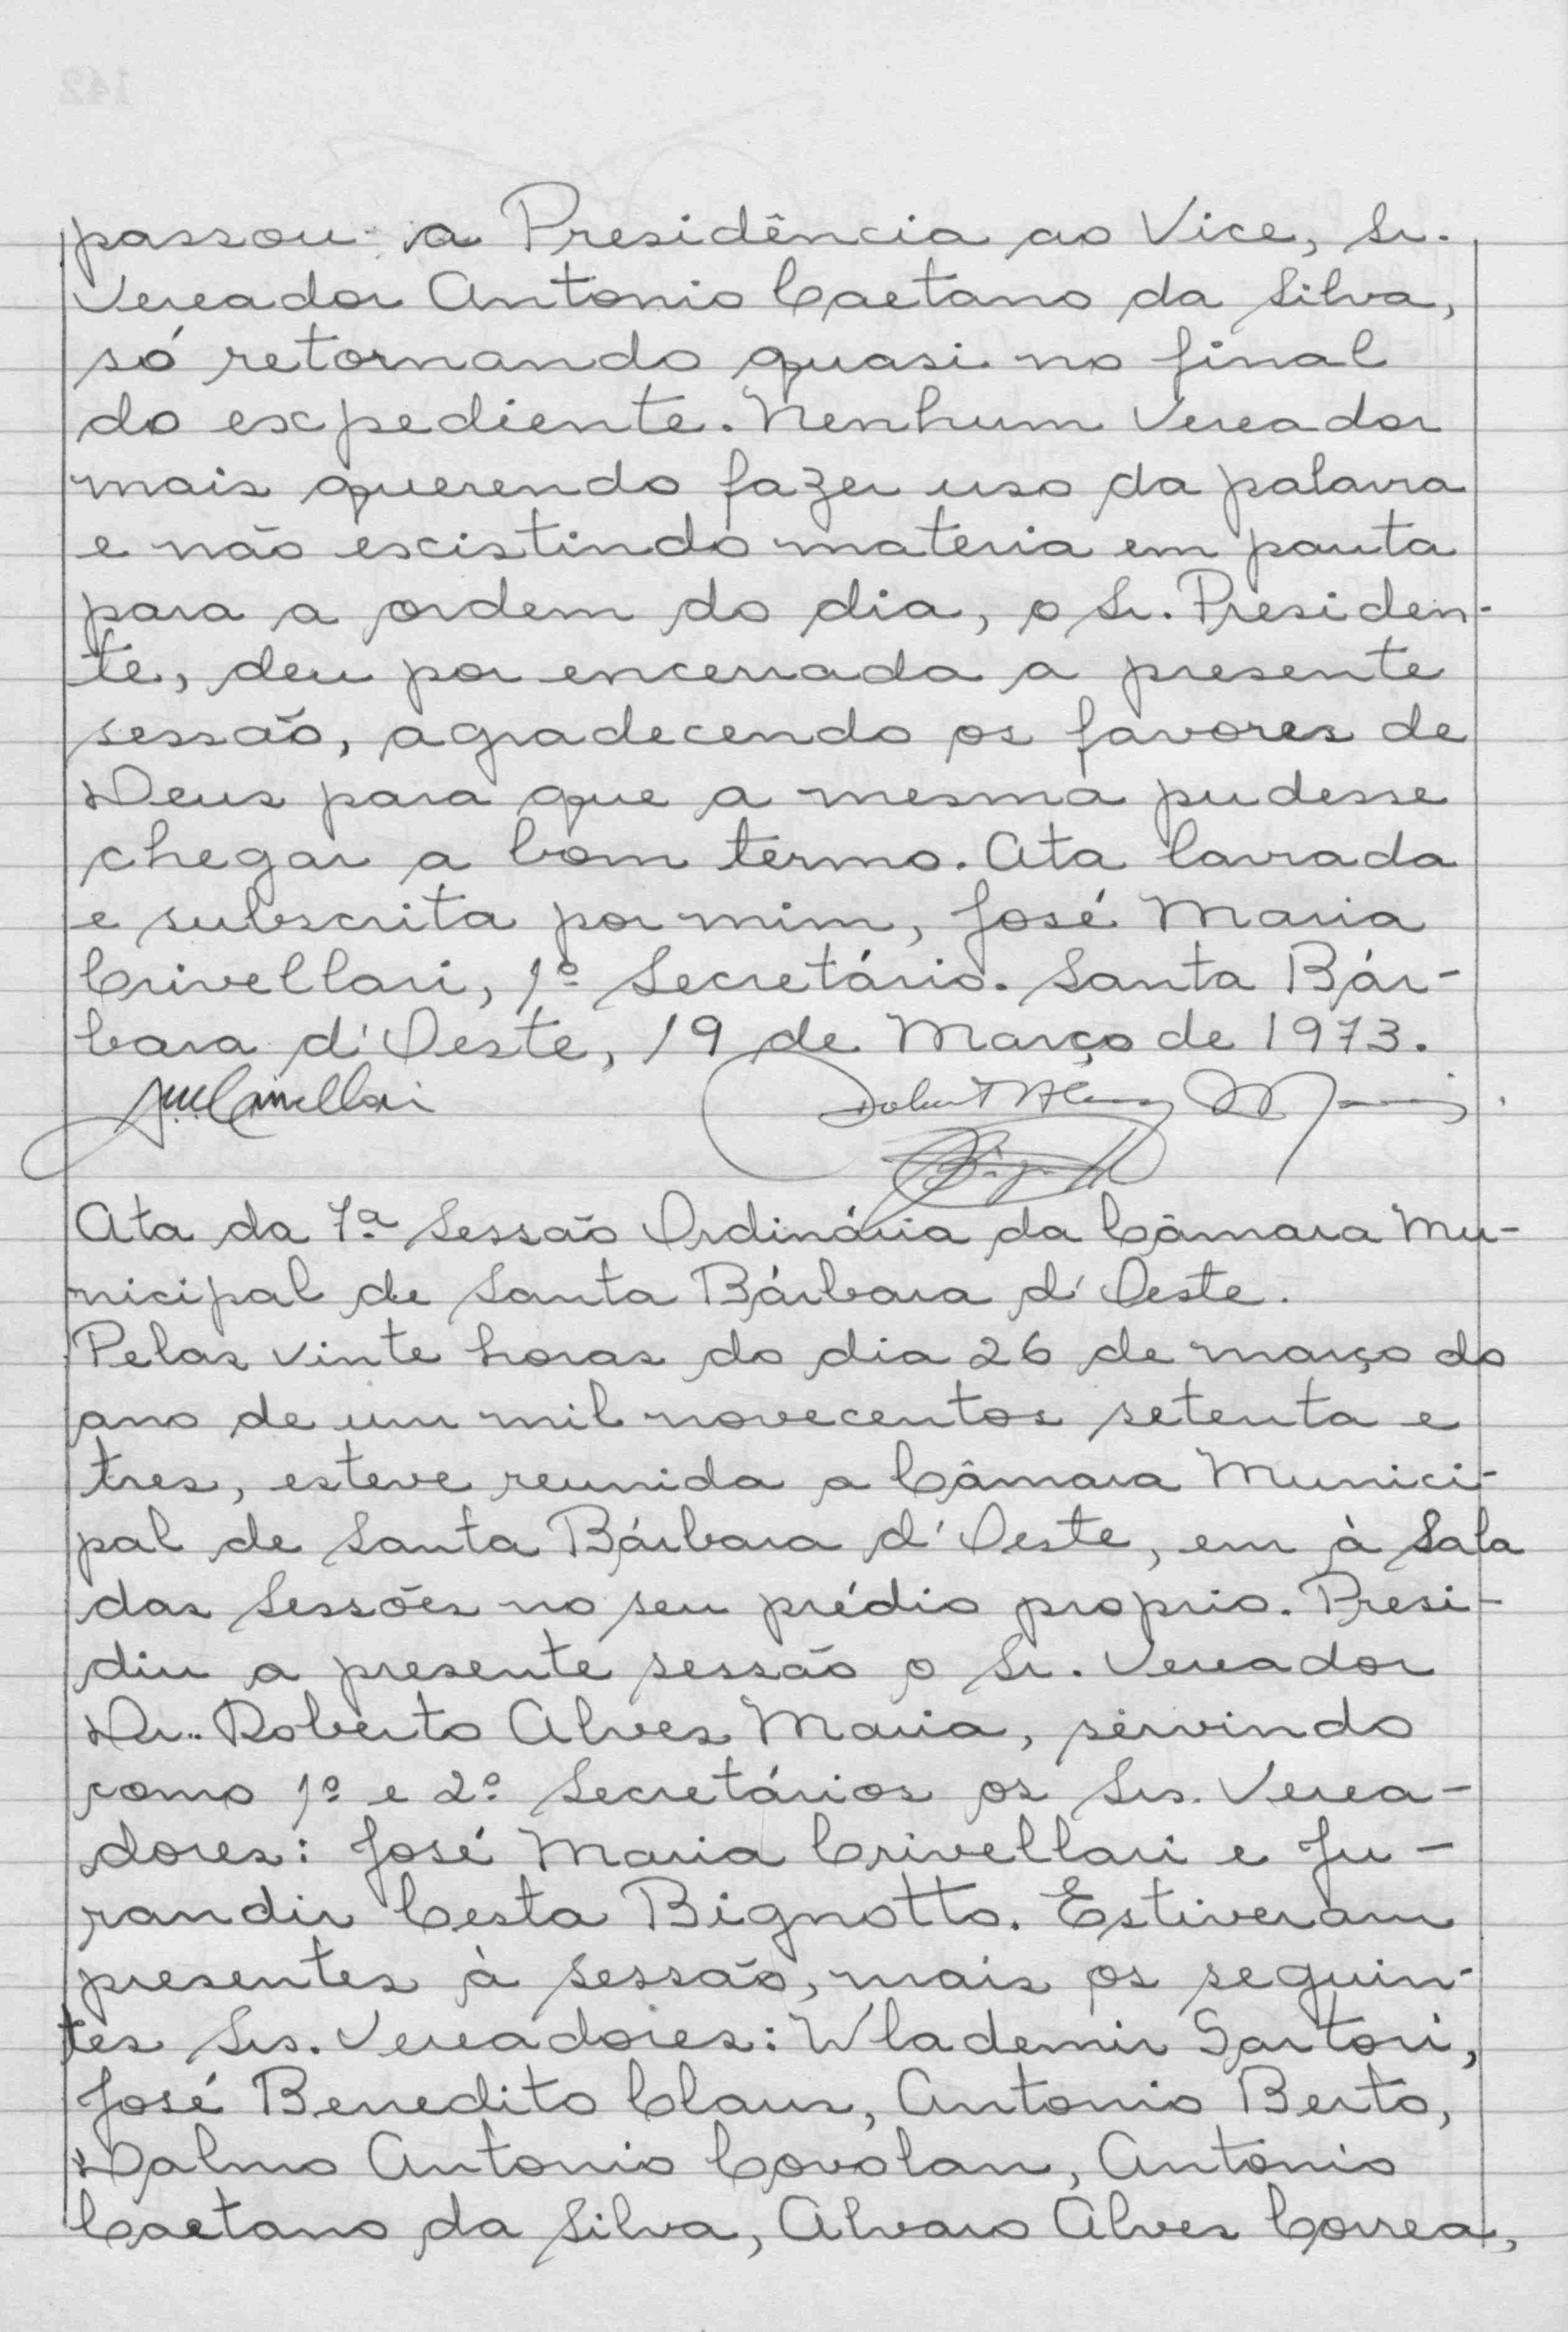 passou a Presidência ao Vice, Sr.
Vereador Antonio Caetano da Silva,
só retornando quasi no final
do expediente. Nenhum Vereador
mais querendo fazer uso da palavra
e não existindo materia em pauta
para a ordem do dia, o Sr. Presiden-
te, deu por encerrada a presente
sessão, agradecendo os favores de
Deus para que a mesma pudesse
chegar a bom termo. Ata lavrada
e subscrita por mim, José Maria
Crivellari, 1º Secretário. Santa Bár-
bara d'Oeste, 19 de Março de 1973.
Ata da 7ª Sessão Ordinária da Câmara Mu-
nicipal de Santa Bárbara d'Oeste.
Pelas vinte horas do dia 26 de março do
ano de um mil novecentos setenta e
tres, esteve reunida a Câmara Munici-
pal de Santa Bárbara d'Oeste, em à Sala
das Sessões no seu prédio proprio. Presi-
diu a presente sessão o Sr. Vereador
Dr. Roberto Alves Maria, servindo
como 1º e 2º Secretários os Srs. Verea-
dores: José Maria Crivellari e Ju-
randir Cesta Bignotto. Estiveram
presentes à sessão, mais os seguin-
tes Srs. Vereadores: Wlademir Sartori,
José Benedito Claus, Antonio Berto,
Dalmo Antonio Covolan, Antonio
Caetano da Silva, Alvaro Alves Correa,